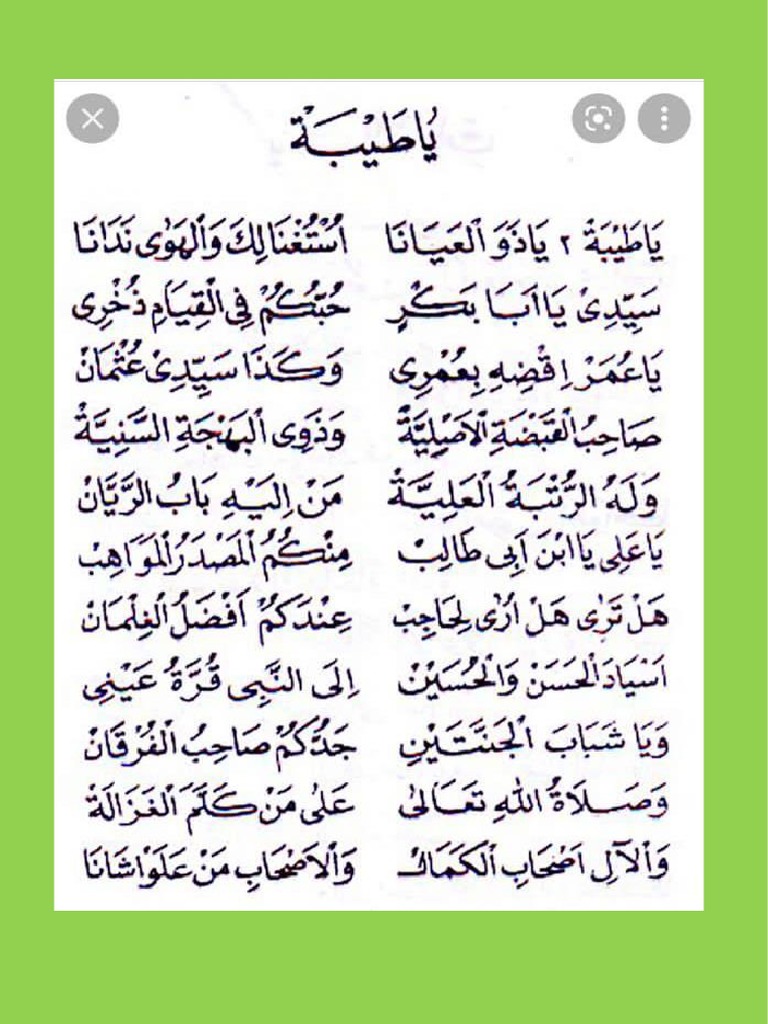 يَاطَيْبَةْ
يَاطَيْبَةْ ٢ يَاذَوَ الْعَيَانَا اُسْتُغْنَالِكَ وَالْهَوٰى نَدَانَا
سَيِّدِىْ يَااَبَا بَكْرٍ حُبُّكُمْ فِى الْقِيَامِ ذُخْرِى
يَاعُمَرْ اِقْضِهِ بِعُمْرِى وَكَذَا سَيِّدِىْ عُثْمَانْ
صَاحِبُ الْقَبْضَةِ الْاَصْلِيَّةْ وَذَوِى الْبَهْجَةِ السَّنِيَّةْ
وَلَهُ الرُّتْبَةُ الْعَلِيَّةْ مَنْ اِلَيْهِ بَابُ الرَّيَّانْ
يَاعَلِى يَاابْنَ اَبِى طَالِبْ مِنْكُمُ الْمَصْدَرُ الْمَوَاهِبْ
هَلْ تَرٰى هَلْ اُرٰى لِحَاجِبْ عِنْدَكُمْ اَفْضَلُ الْغِلْمَانْ
اَسْيَادَ الْحَسَنْ وَالْحُسَيْنْ اِلَى النَّبِى قُرَّةُ عَيْنِى
وَيَا شَبَابَ الْجَنَّتَيْنِ جَدُّكُمْ صَاحِبُ الْفُرْقَانْ
وَصَلَاةُ اللهِ تَعَالٰى عَلٰى مَنْ كَلَّمَ الْغَزَالَةْ
وَالْآلِ اَصْحَابِ الْكَمَالْ وَالْاَصْحَابِ مَنْ عَلَوْاشَانَا